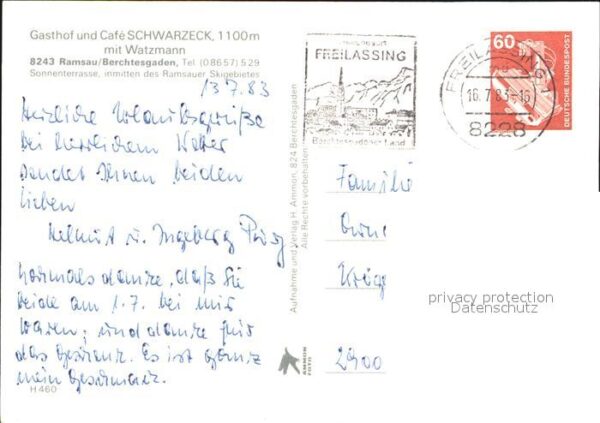 Gasthof und Café SCHWARZECK, 1100m
mit Watzmann
8243 Ramsau/Berchtesgaden, Tel. (08657) 529
Sonnenterrasse, inmitten des Ramsauer Skigebietes
13.7.83
Herzliche Urlaubsgrüße
bei herrlichem Wetter
sendet Ihnen beiden
lieben
Helmut u. Ingeborg
Nochmals danke, daß Sie
beide am 1.7. bei mir
waren; und danke für
das Geschenk. Es ist ganz
mein Geschmack.
H 460
Aufnahme und Verlag H. Ammon, 824 Berchtesgaden
Alle Rechte vorbehalten
AMMON
FOTO
FREILASSING
Berchtesgadener Land
FREILASSING 1
16.7.83-15
8228
60
DEUTSCHE BUNDESPOST
Familie
2900
privacy protection
Datenschutz